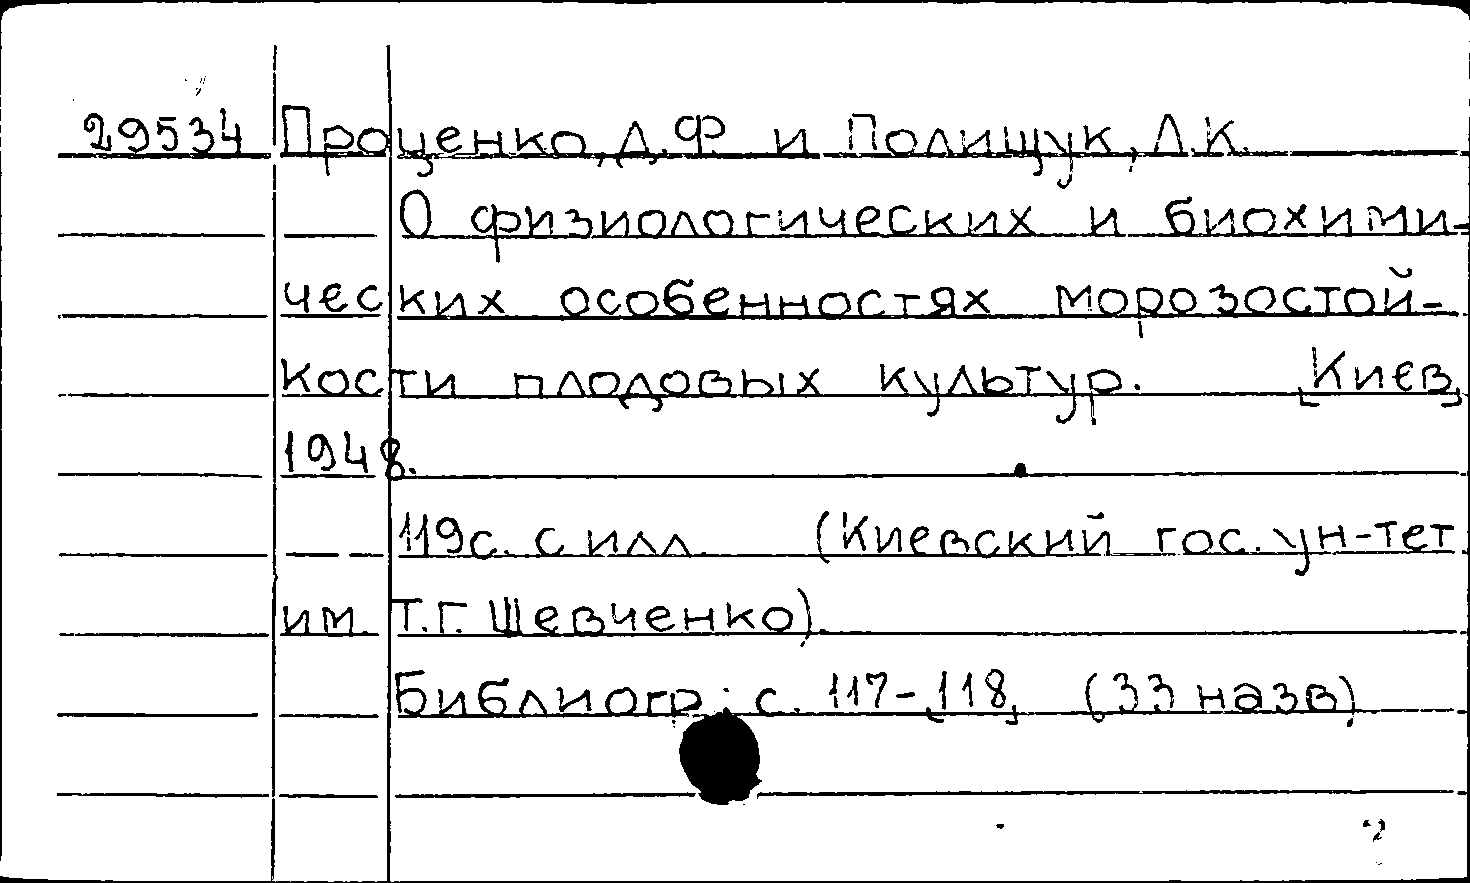 29534 Проценко, Д.Ф и Полищук, Л.К.
О физиологических и биохими-
ческих особенностях морозостой-
кости плодовых культур. [Киев]
1948.
119с. с илл. (Киевский гос. ун-тет
им. Т.Г. Шевченко).
Библиогр: с. 117-[118] (33 назв)